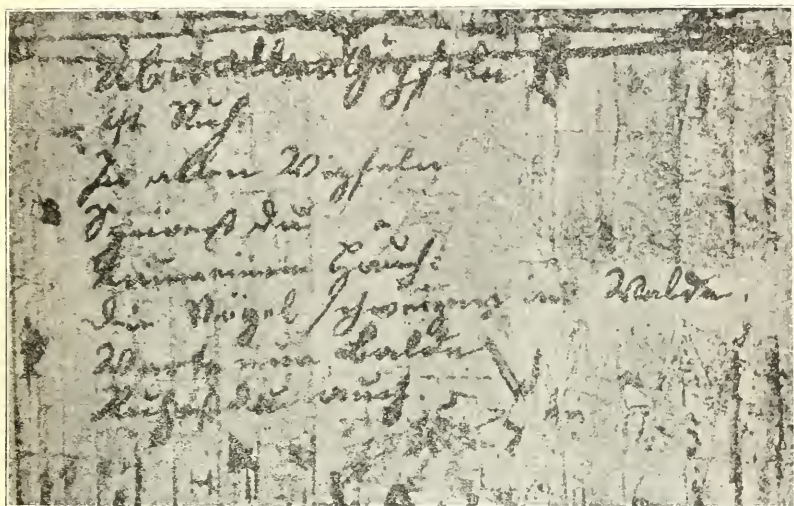 Über allen Gipfeln
ist Ruh
In allen Wipfeln
Spürest du
Kaum einen Hauch:
Die Vögel schweigen im Walde.
Warte nur balde
Ruhest du auch.